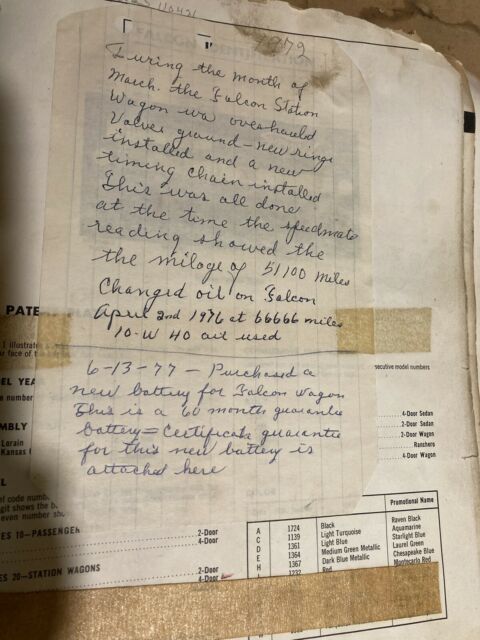 1972
During the month of
March. the Falcon Station
Wagon wa overhauled
Valves ground - new rings
installed and a new
timing chain installed
This was all done
at the time the speedmate
reading showed the
the miloge of 51100 miles
Changed oil on Falcon
April 2nd 1976 at 66666 miles
10-W 40 oil used
6-13-77 - Purchased a
new battery for Falcon Wagon
This is a 60 month guarantee
battery = Certificate guarantee
for this new battery is
attached here
PATE
1 illustrate
or face of t
secutive model numbers
EL YEA
e number
MBLY
Lorain
Kansas
4-Door Sedan
2-Door Sedan
2-Door Wagon
Ranchero
4-Door Wagon
EL
el code numb
git shows the b
even number
ES 10—PASSENGER
2-Door
4-Door
ES 20—STATION WAGONS
2-Door
4-Door
Promotional Name
A 1724 Black Raven Black
C 1139 Light Turquoise Aquamarine
D 1361 Light Blue Starlight Blue
E 1364 Medium Green Metallic Laurel Green
H 1367 Dark Blue Metallic Chesapeake Blue
1232 Red Montecarlo Red